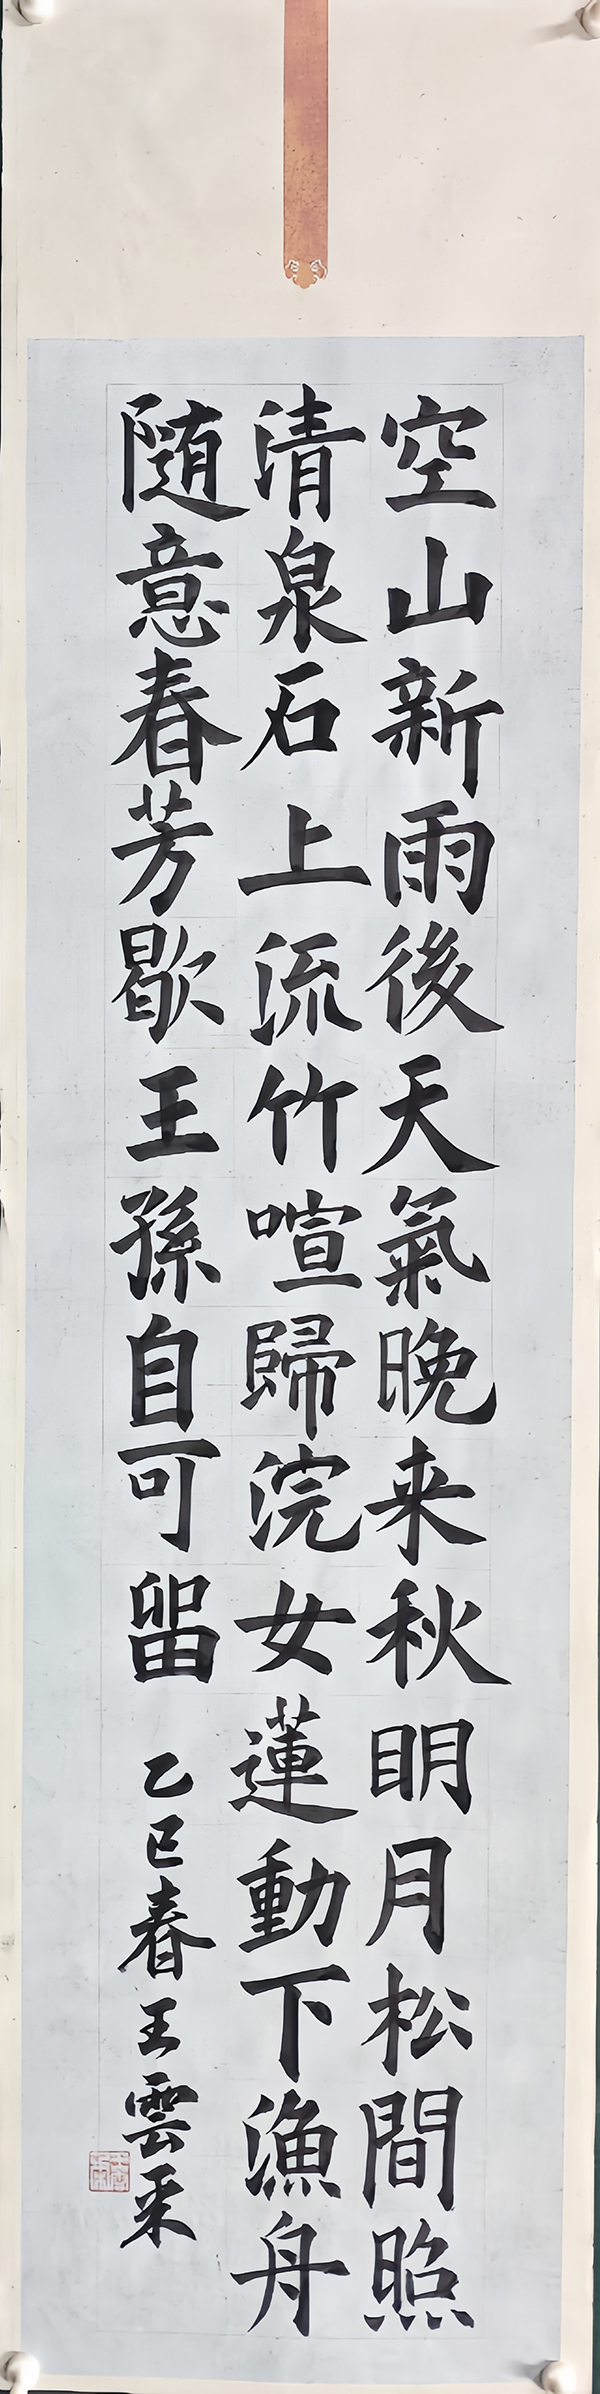 空山新雨後天氣晚来秋明月松間照
清泉石上流竹喧歸浣女蓮動下漁舟
随意春芳歇王孫自可留
乙巳春王雲采